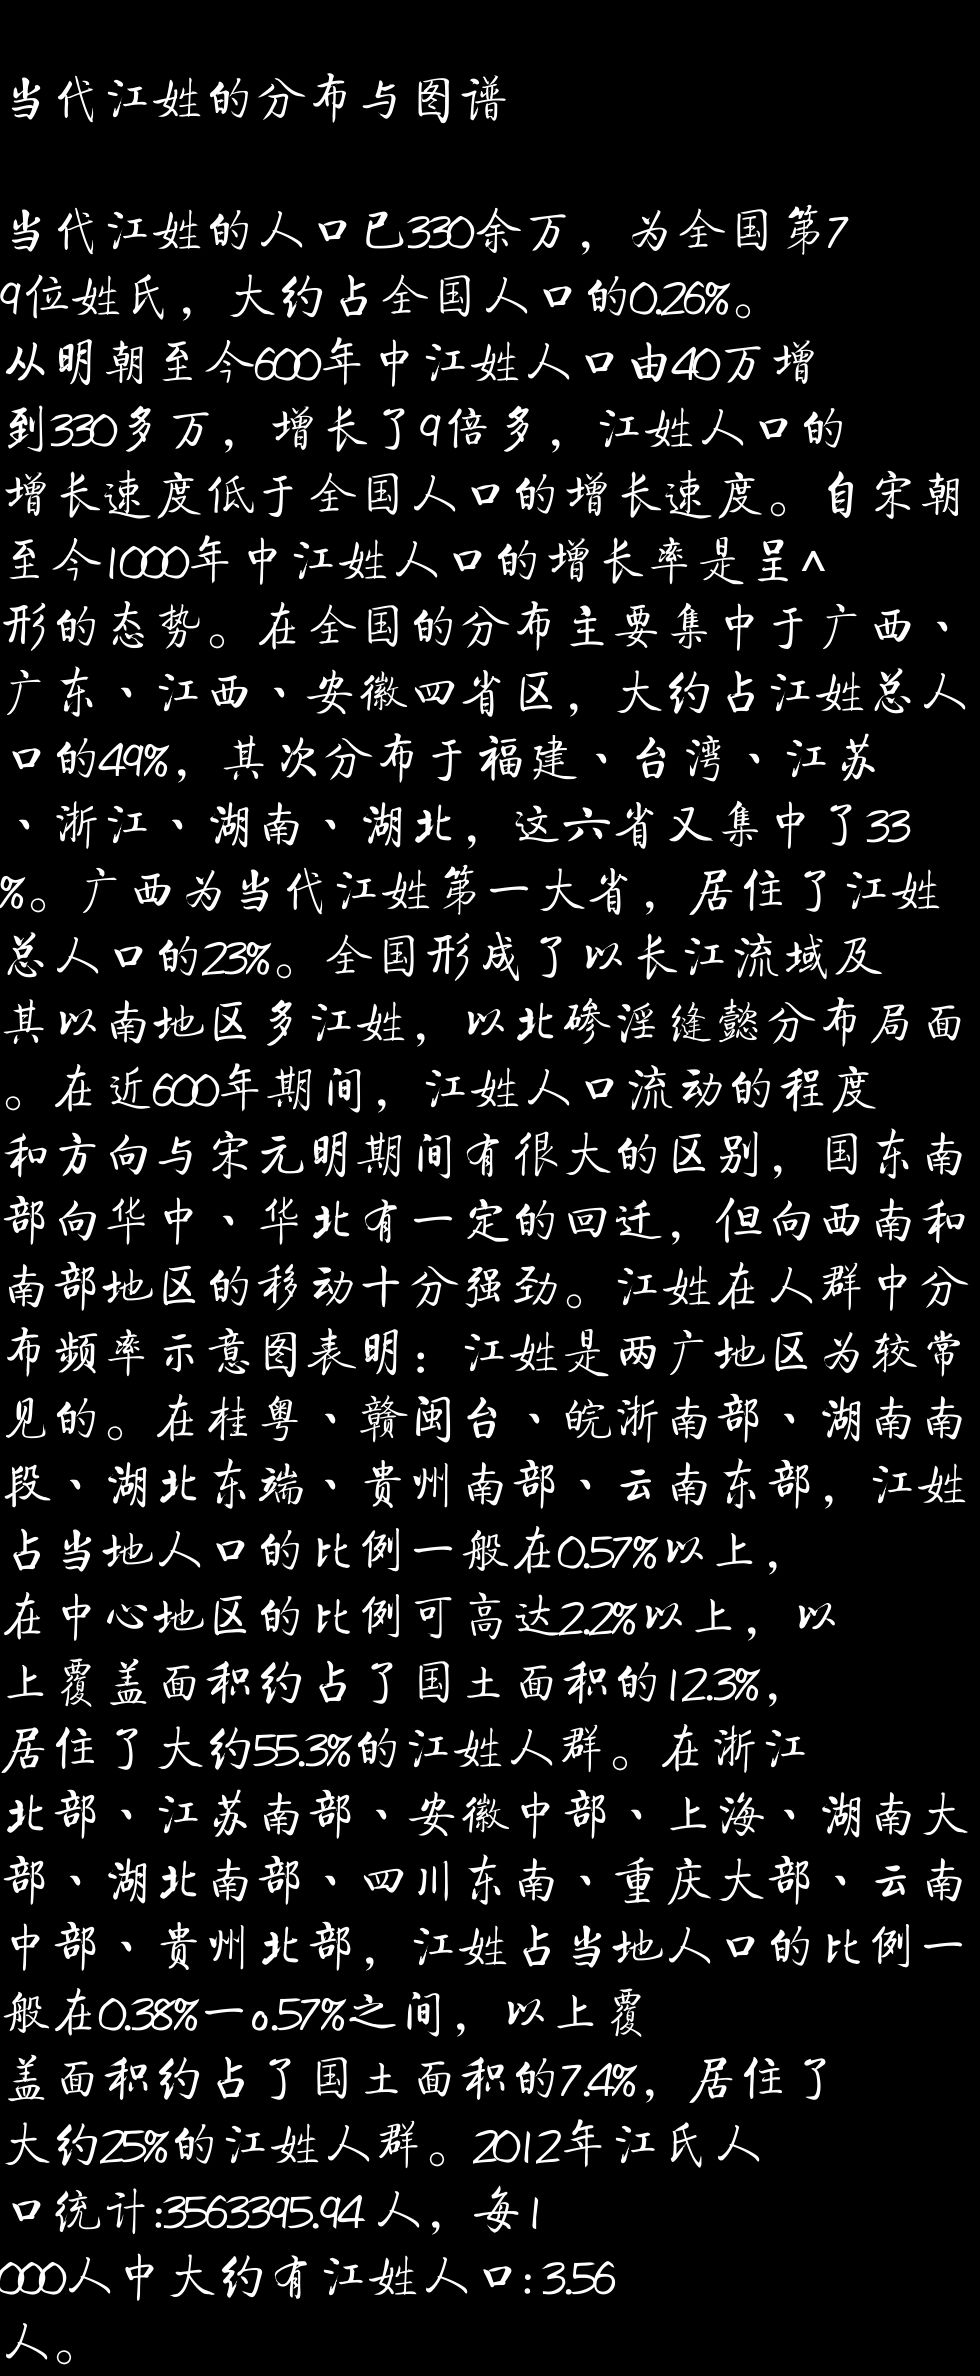 当代江姓的分布与图谱
当代江姓的人口已330余万，为全国第7
9位姓氏，大约占全国人口的0.26%。
从明朝至今600年中江姓人口由40万增
到330多万，增长了9倍多，江姓人口的
增长速度低于全国人口的增长速度。自宋朝
至今1000年中江姓人口的增长率是呈^
形的态势。在全国的分布主要集中于广西、
广东、江西、安徽四省区，大约占江姓总人
口的49%，其次分布于福建、台湾、江苏
、浙江、湖南、湖北，这六省又集中了33
%。广西为当代江姓第一大省，居住了江姓
总人口的23%。全国形成了以长江流域及
其以南地区多江姓，以北碜淫缝懿分布局面
。在近600年期间，江姓人口流动的程度
和方向与宋元明期间有很大的区别，国东南
部向华中、华北有一定的回迁，但向西南和
南部地区的移动十分强劲。江姓在人群中分
布频率示意图表明：江姓是两广地区为较常
见的。在桂粤、赣闽台、皖浙南部、湖南南
段、湖北东端、贵州南部、云南东部，江姓
占当地人口的比例一般在0.57%以上，
在中心地区的比例可高达2.2%以上，以
上覆盖面积约占了国土面积的12.3%，
居住了大约55.3%的江姓人群。在浙江
北部、江苏南部、安徽中部、上海、湖南大
部、湖北南部、四川东南、重庆大部、云南
中部、贵州北部，江姓占当地人口的比例一
般在0.38%一o.57%之间，以上覆
盖面积约占了国土面积的7.4%，居住了
大约25%的江姓人群。2012年江氏人
口统计:3563395.94 人，每1
000人中大约有江姓人口: 3.56
人。